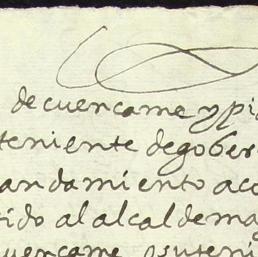 de cuencame y pi
teniente de gober
andamiento aco
tido al alcalde ma
uencame o su teni